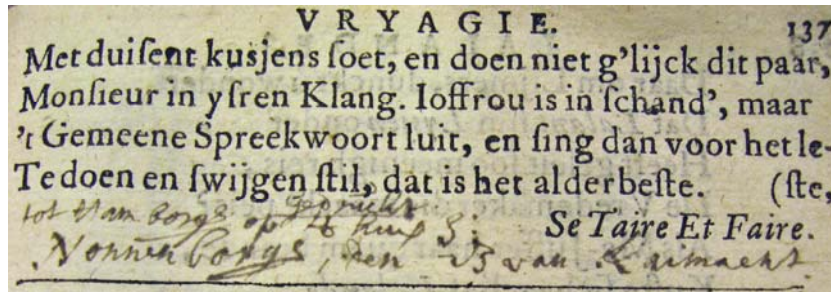 VRYAGIE. 137
Met duiſent kusjens ſoet, en doen niet g'lijck dit paar,
Monſieur in yſren Klang. Ioffrou is in ſchand', maar
't Gemeene Spreekwoort luit, en ſing dan voor het le-
Te doen en ſwijgen ſtil, dat is het alderbeſte. (ſte,
Se Taire Et Faire.
tot Ham borgs op
Nonnen borgs, den van